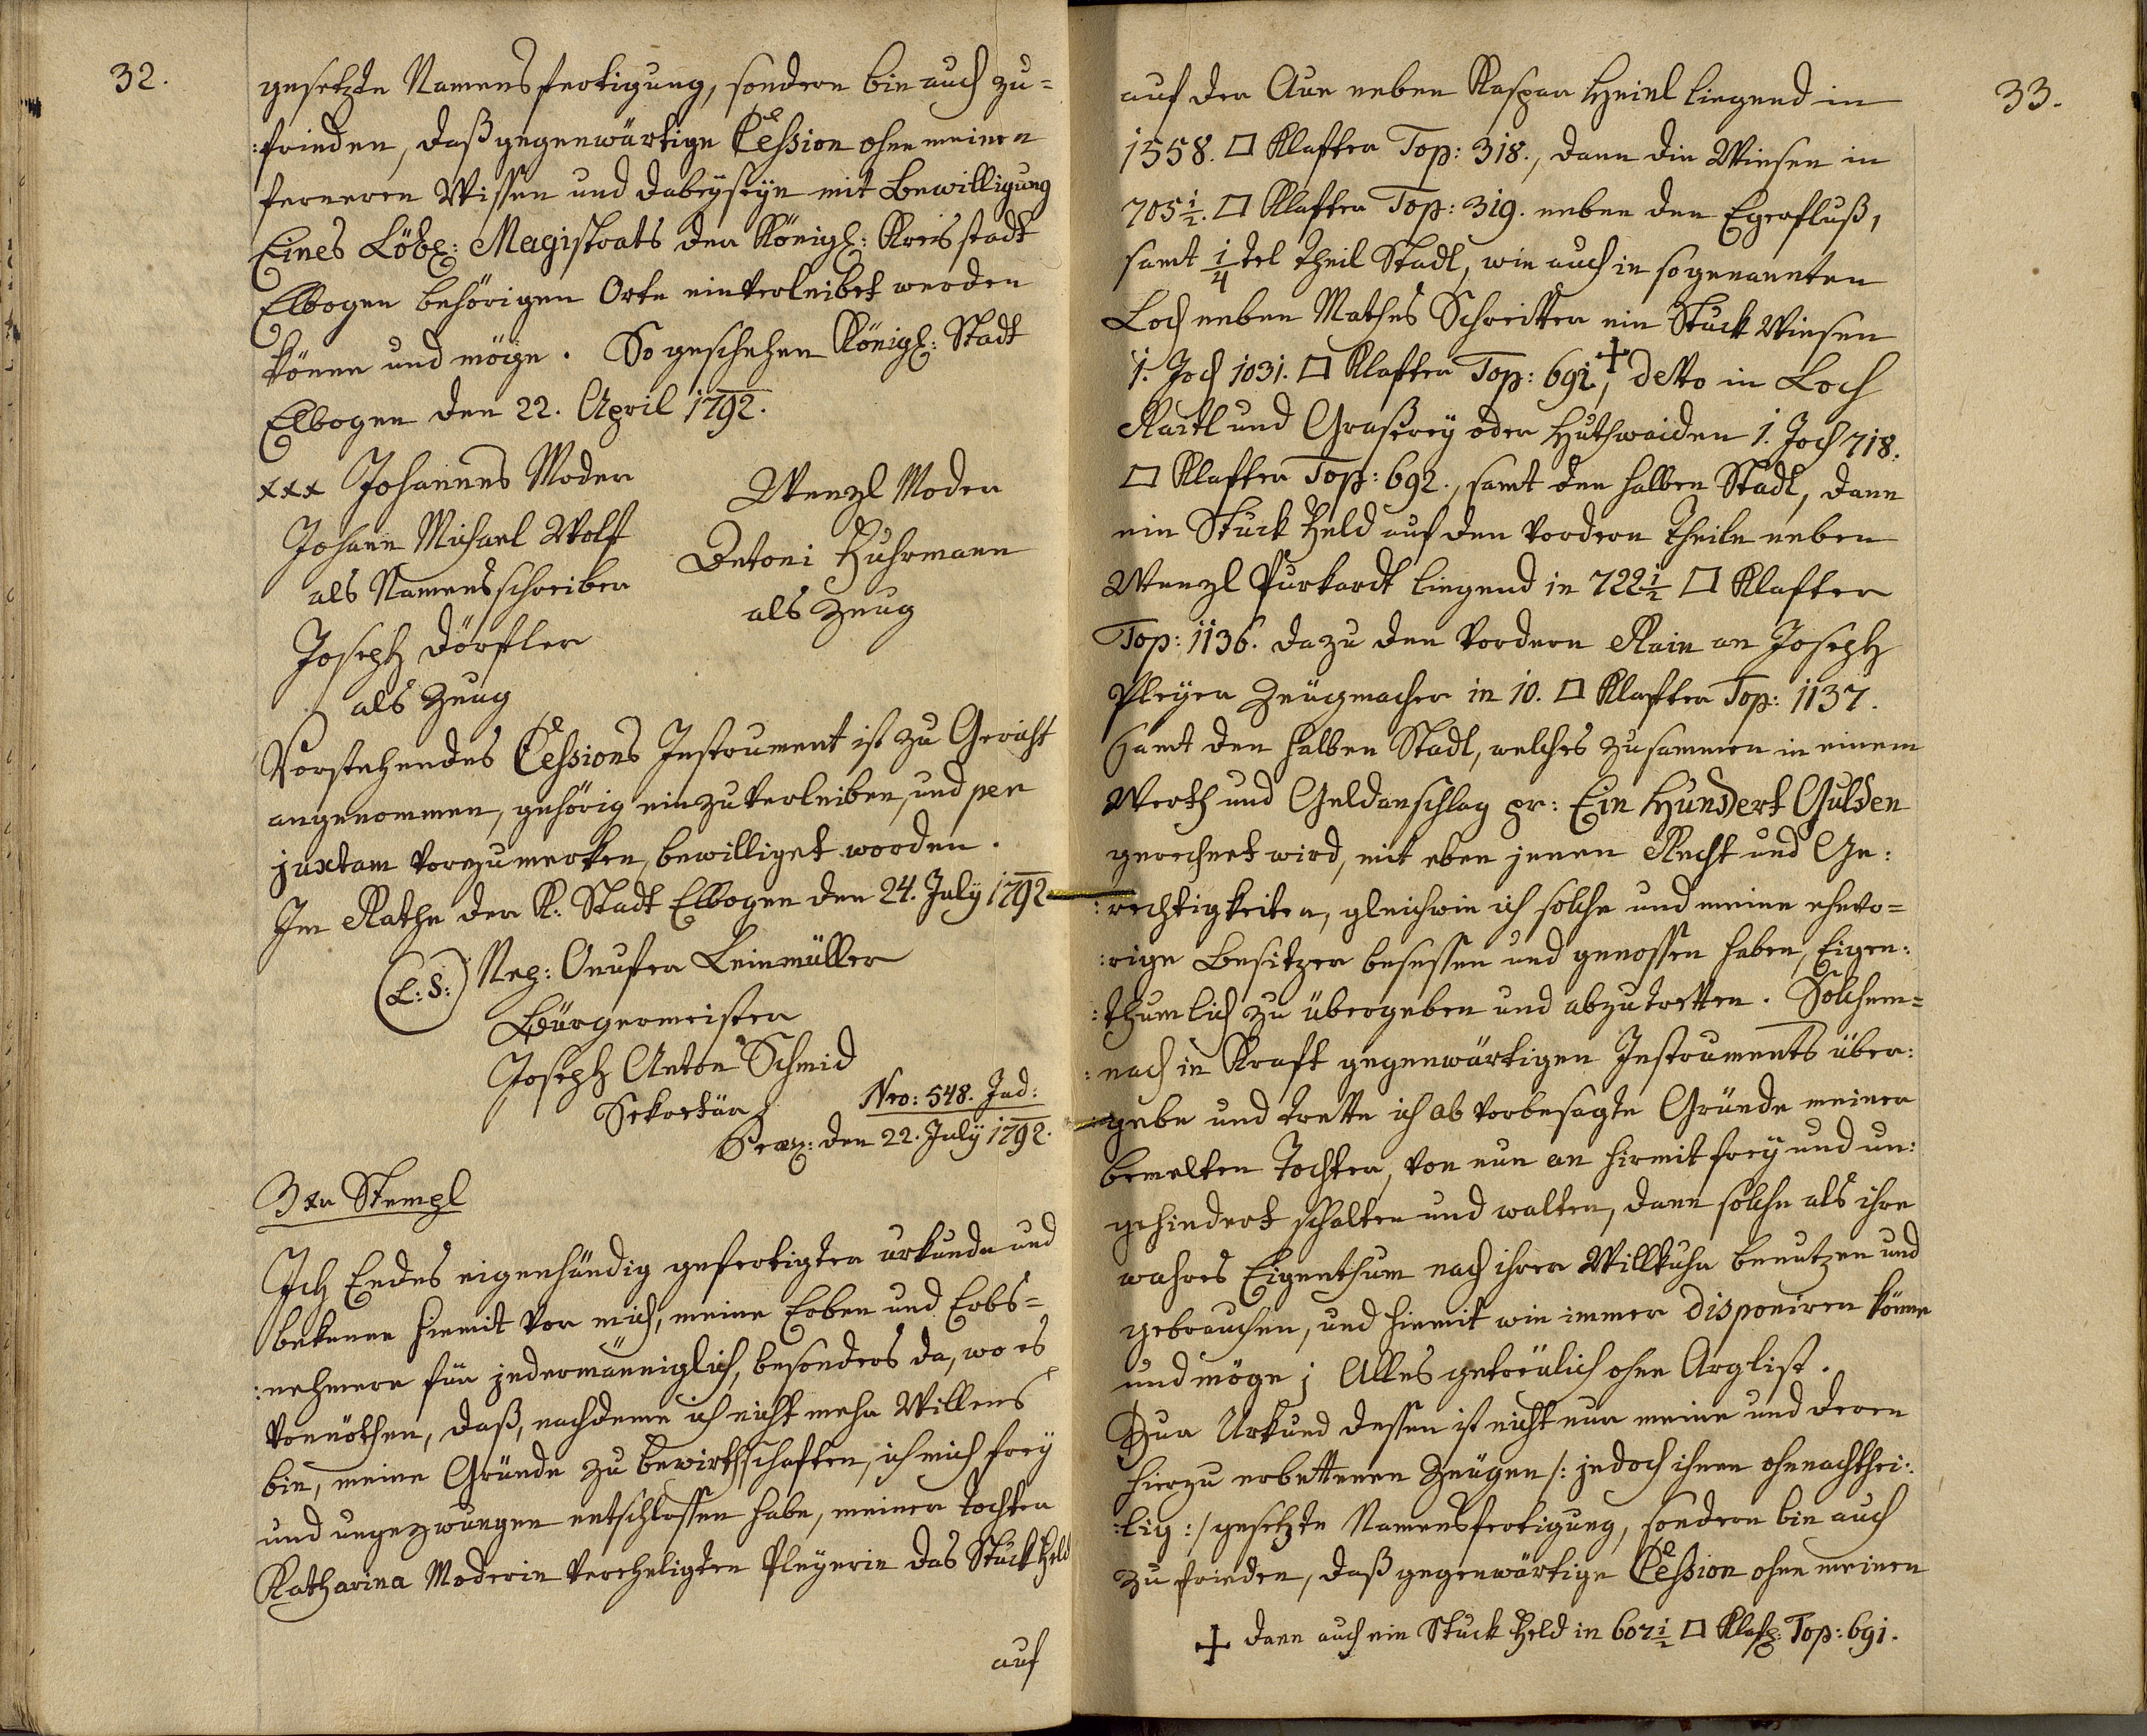 32.
gesetzte Namensfertigung, sondern bin auch zu=
:frieden, daß gegenwärtige Cession ohne meinen
ferneren Wissen und dabeyseyn mit Bewilligung
Eines Löbl: Magistrats der Königl: Kreisstadt
Elbogen behörigen Orts einverleibet werden
könne und möge. So geschehen Königl: Stadt
Elbogen den 22. April 1792.
xxx Johannes Moder
Wenzl Moder
Johann Michael Wolf
als Namensschreiber
Antoni Fuhrmann
als Zeug
Joseph Dörfler
als Zeug
Vorstehendes Cessions Instrument ist zu Gericht
angenommen, gehörig einzuverleiben, und per
juxtam vorzumerken, bewilliget worden.
Im Rathe der K: Stadt Elbogen den 24. July 1792
(L:S:) Nep: Onufer Leinmüller
Bürgermeister
Joseph Anton Schmid
Sekretär
Nro: 548. Jud:
Præs: den 22. July 1792.
3 xr Stempl
Ich Endes eigenhändig gefertigter urkunde und
bekenne hiemit vor mich, meine Erben und Erbs=
:nehmere für jedermänniglich, besonders da, wo es
vonnöthen, daß, nachdeme ich nicht mehr Willens
bin, meine Gründe zu bewirthschaften, ich mich frey
und ungezwungen entschlossen habe, meiner Tochter
Katharina Moderin verehligten Pleyerin das Stuck Feld
auf
33.
auf der Aue neben Kaspar Heinl liegend in
1558. □ Klafter Top: 318., dann die Wiesen in
705½. □ Klafter Top: 319. neben den Egerfluß,
samt 1/4tel Theil Stadl, wie auch in sogenannten
Loch neben Mathes Schreitter ein Stuck Wiesen
1. Joch 1031. □ Klafter Top: 691., + detto in Loch
Raitl und Graßerey oder Huthwaiden 1. Joch 718.
□ Klafter Top: 692., samt den halben Stadl, dann
ein Stuck Feld auf den vordern Theile neben
Wenzl Purkardt liegend in 722½ □ Klafter
Top: 1136. dazu den vordern Rain an Joseph
Pleyer Zeugmacher in 10. □ Klafter Top: 1137.
samt den halben Stadl, welches zusammen in einem
Werth und Geldanschlag pr: Ein Hundert Gulden
gerechnet wird, mit eben jenen Recht und Ge:
:rechtigkeiten, gleichwie ich solche und meine ehevo=
:rige Besitzer besessen und genossen haben, Eigen:
:thumlich zu übergeben und abzutretten. Solchem=
:nach in Kraft gegenwärtigen Instruments über:
:gebe und trette ich ab vorbesagte Gründe meiner
bemelten Tochter, von nun an hiermit frey und un:
gehindert schalten und walten, dann solche als ihre
wahres Eigenthum nach ihrer Willkuhr benutzen und
gebrauchen, und hiemit wie immer disponiren könne
und möge; Alles getreulich ohne Arglist.
Zur Urkund dessen ist nicht nur meine und deren
hierzu erbettenen Zeugen /: jedoch ihnen ohnnachthei:
:lig :/ gesetzte Namensfertigung, sondern bin auch
zufrieden, daß gegenwärtige Cession ohne meinen
+ dann auch ein Stuck Feld in 607½ □ Klaft: Top: 691.